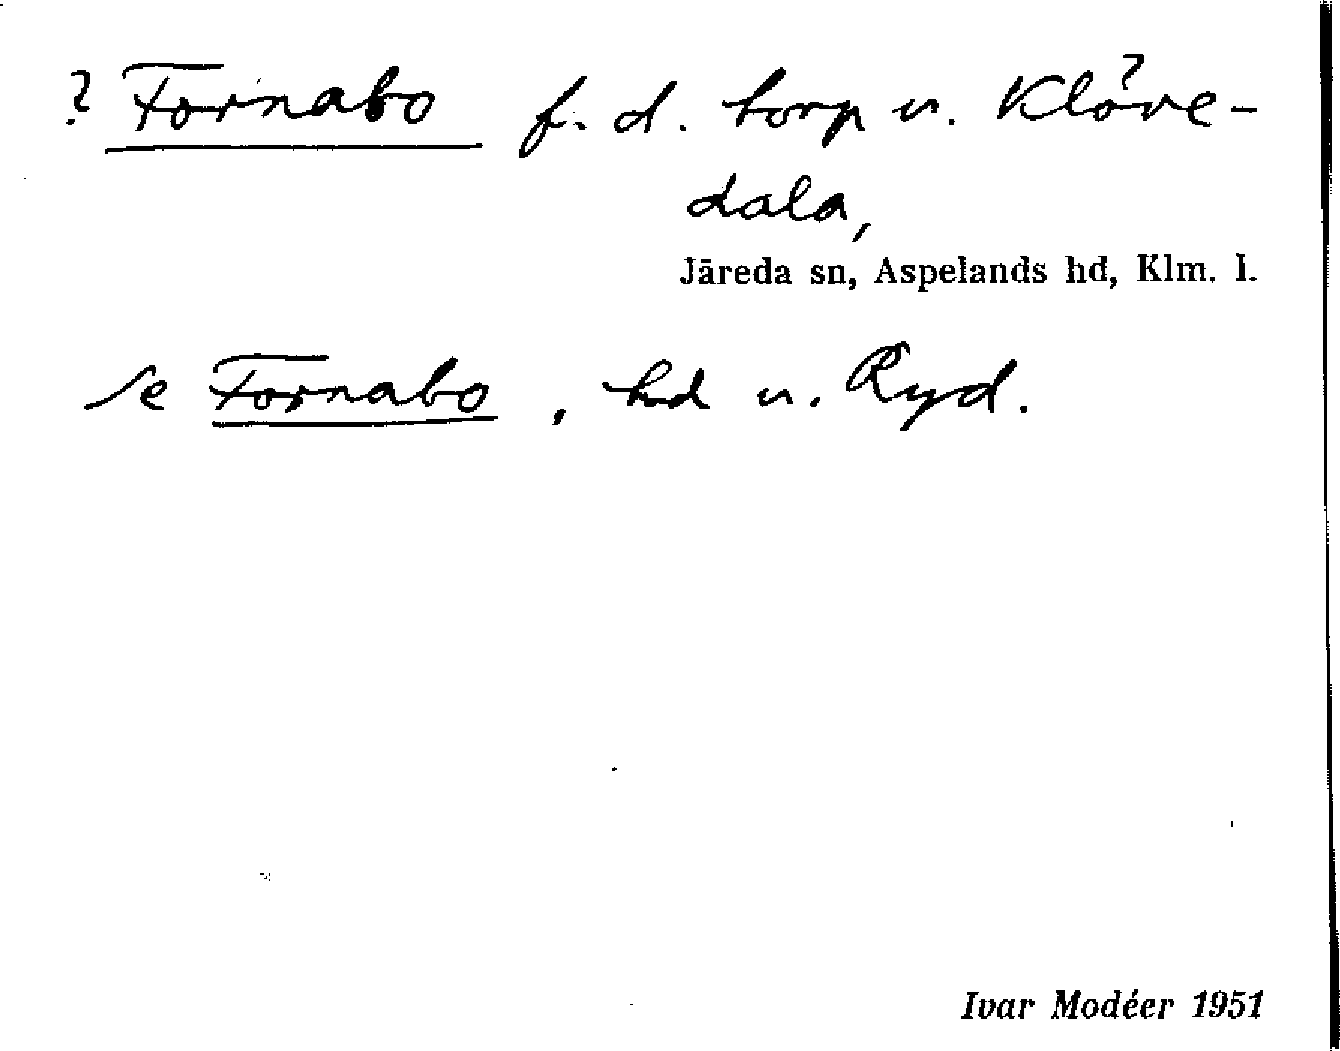 ? Fornabo f. d. torp u. Klöve-
dala,
Järeda sn, Aspelands hd, Klm. l.
se Fornabo, hd u. Ryd.
Ivar Modéer 1951